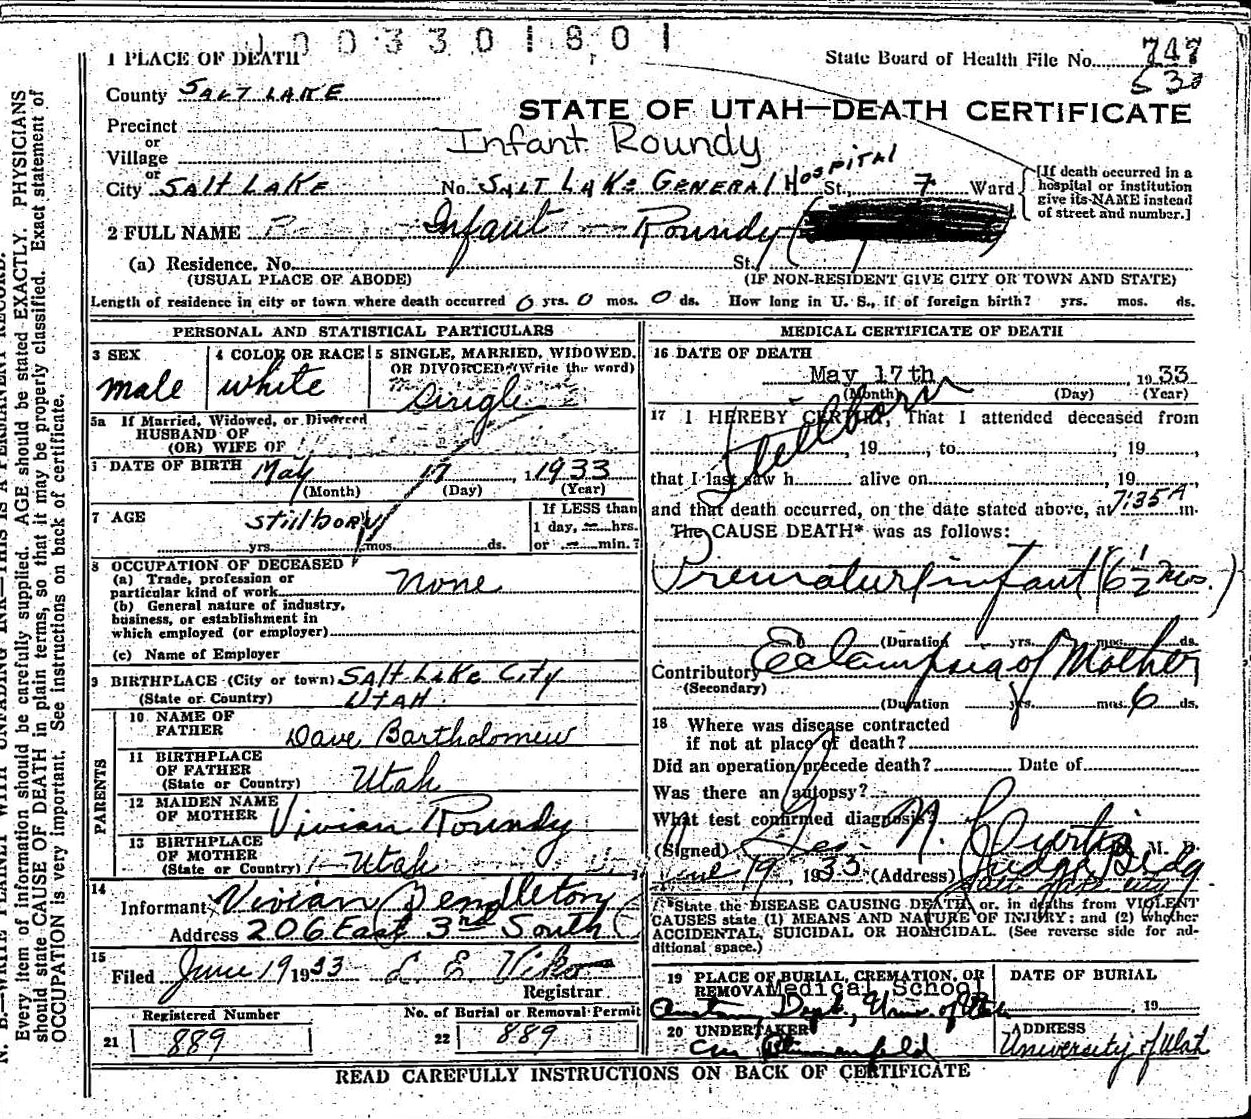 1 0 0 3 3 0 1 8 0 1
1 PLACE OF DEATH
State Board of Health File No. 747
County SALT LAKE
530
STATE OF UTAH—DEATH CERTIFICATE
Precinct
or
Infant Roundy
Village
or
City SALT LAKE No. SALT LAKE GENERAL HOSPITAL St., 7 Ward
[If death occurred in a hospital or institution give its NAME instead of street and number.]
2 FULL NAME Infant Roundy
(a) Residence. No. St.,
(USUAL PLACE OF ABODE) (IF NON-RESIDENT GIVE CITY OR TOWN AND STATE)
Length of residence in city or town where death occurred 0 yrs. 0 mos. 0 ds. How long in U. S., if of foreign birth? yrs. mos. ds.
PERSONAL AND STATISTICAL PARTICULARS
3 SEX male
4 COLOR OR RACE white
5 SINGLE, MARRIED, WIDOWED, OR DIVORCED (Write the word)
Single
5a If Married, Widowed, or Divorced
HUSBAND OF
(OR) WIFE OF
6 DATE OF BIRTH May 17, 1933
(Month) (Day) (Year)
7 AGE stillborn
yrs. mos. ds.
If LESS than
1 day, hrs.
or min.?
8 OCCUPATION OF DECEASED
(a) Trade, profession or
particular kind of work none
(b) General nature of industry,
business, or establishment in
which employed (or employer)
(c) Name of Employer
9 BIRTHPLACE (City or town) SALT LAKE CITY
(State or Country) UTAH
PARENTS
10 NAME OF FATHER Dave Bartholomew
11 BIRTHPLACE OF FATHER (State or Country) Utah
12 MAIDEN NAME OF MOTHER Vivian Roundy
13 BIRTHPLACE OF MOTHER (State or Country) Utah
14 Informant Vivian Pendleton
Address 206 East 3rd South
15 Filed June 19 1933 L E Viko
Registrar
Registered Number
21 889
No. of Burial or Removal Permit
22 889
MEDICAL CERTIFICATE OF DEATH
16 DATE OF DEATH
May 17th 1933
(Month) (Day) (Year)
17 I HEREBY CERTIFY, That I attended deceased from
, 19 , to , 19 ,
Stillborn
that I last saw h alive on , 19 ,
and that death occurred, on the date stated above, at 7:35 A m.
The CAUSE DEATH* was as follows:
Premature infant (6 1/2 mos.)
(Duration yrs. mos. ds.
Contributory Eclampsia of Mother
(Secondary)
(Duration yrs. mos. 6 ds.
18 Where was disease contracted
if not at place of death?
Did an operation precede death? Date of
Was there an autopsy?
What test confirmed diagnosis?
(Signed) Geo. N. Curtis M. D.
June 19, 1933 (Address) Judge Bldg
Salt Lake City
*State the DISEASE CAUSING DEATH, or, in deaths from VIOLENT
CAUSES state (1) MEANS AND NATURE OF INJURY; and (2) whether
ACCIDENTAL, SUICIDAL OR HOMICIDAL. (See reverse side for ad-
ditional space.)
19 PLACE OF BURIAL, CREMATION, OR
REMOVAL Medical School
Anatomy Dept., Univ. of Utah
DATE OF BURIAL
, 19
20 UNDERTAKER
ADDRESS
University of Utah
READ CAREFULLY INSTRUCTIONS ON BACK OF CERTIFICATE
N. B.—WRITE PLAINLY WITH UNFADING INK—THIS IS A PERMANENT RECORD.
Every item of information should be carefully supplied. AGE should be stated EXACTLY. PHYSICIANS
should state CAUSE OF DEATH in plain terms, so that it may be properly classified. Exact statement of
OCCUPATION is very important. See instructions on back of certificate.